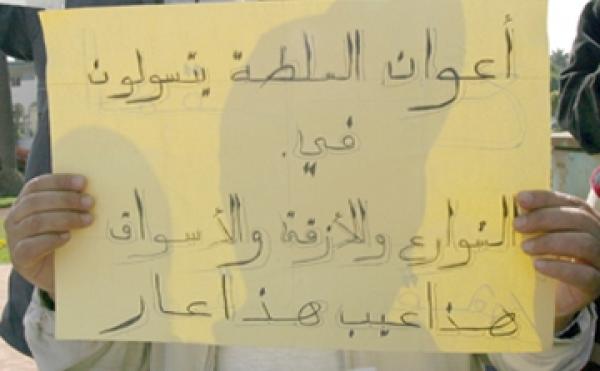 أعوان السلطة يتسولون
في.
الشوارع والأزقة والأسواق
هذا عيب هذا عار